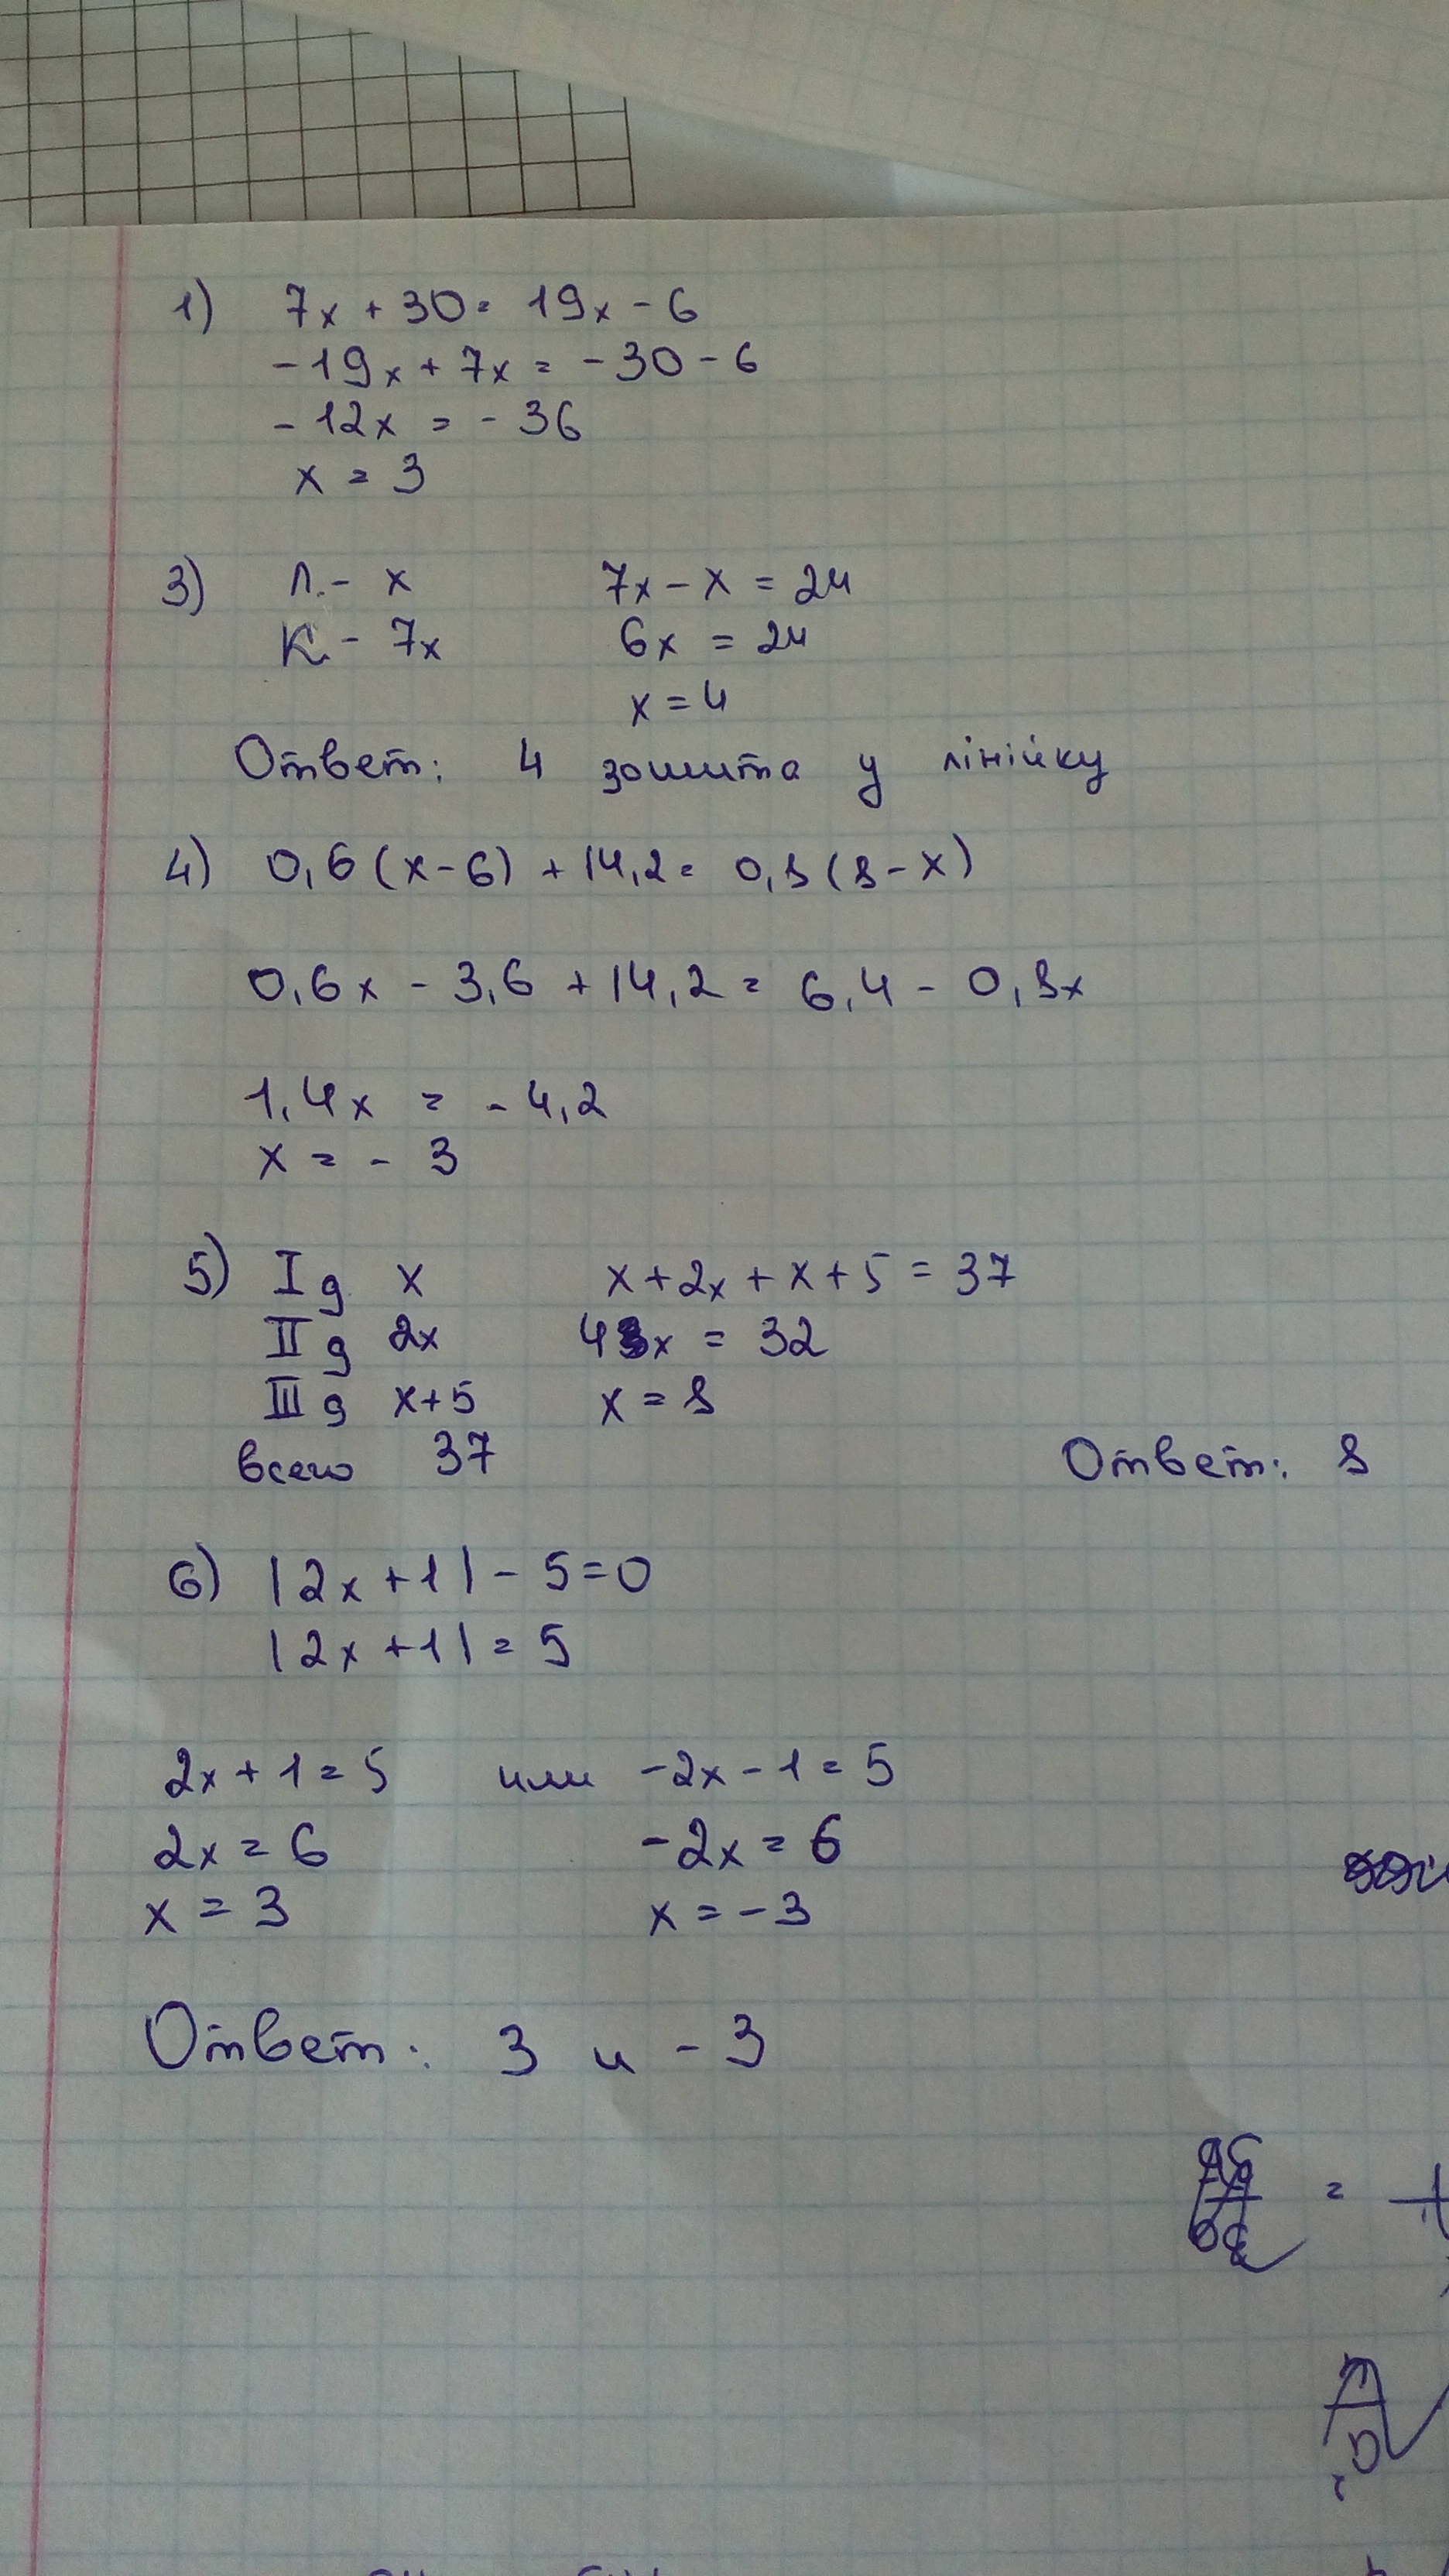 1) 7x + 30 = 19x - 6
-19x + 7x = -30 - 6
-12x = -36
x = 3
3) Л. - x 7x - x = 24
К. - 7x 6x = 24
x = 4
Ответ: 4 зошита у лінійку
4) 0,6(x-6) + 14,2 = 0,8(8-x)
0,6x - 3,6 + 14,2 = 6,4 - 0,8x
1,4x = -4,2
x = -3
5) I g x x + 2x + x + 5 = 37
II g 2x 4x = 32
III g x+5 x = 8
всего 37 Ответ: 8
6) |2x+1| - 5 = 0
|2x+1| = 5
2x + 1 = 5 или -2x - 1 = 5
2x = 6 -2x = 6
x = 3 x = -3
Ответ: 3 и -3